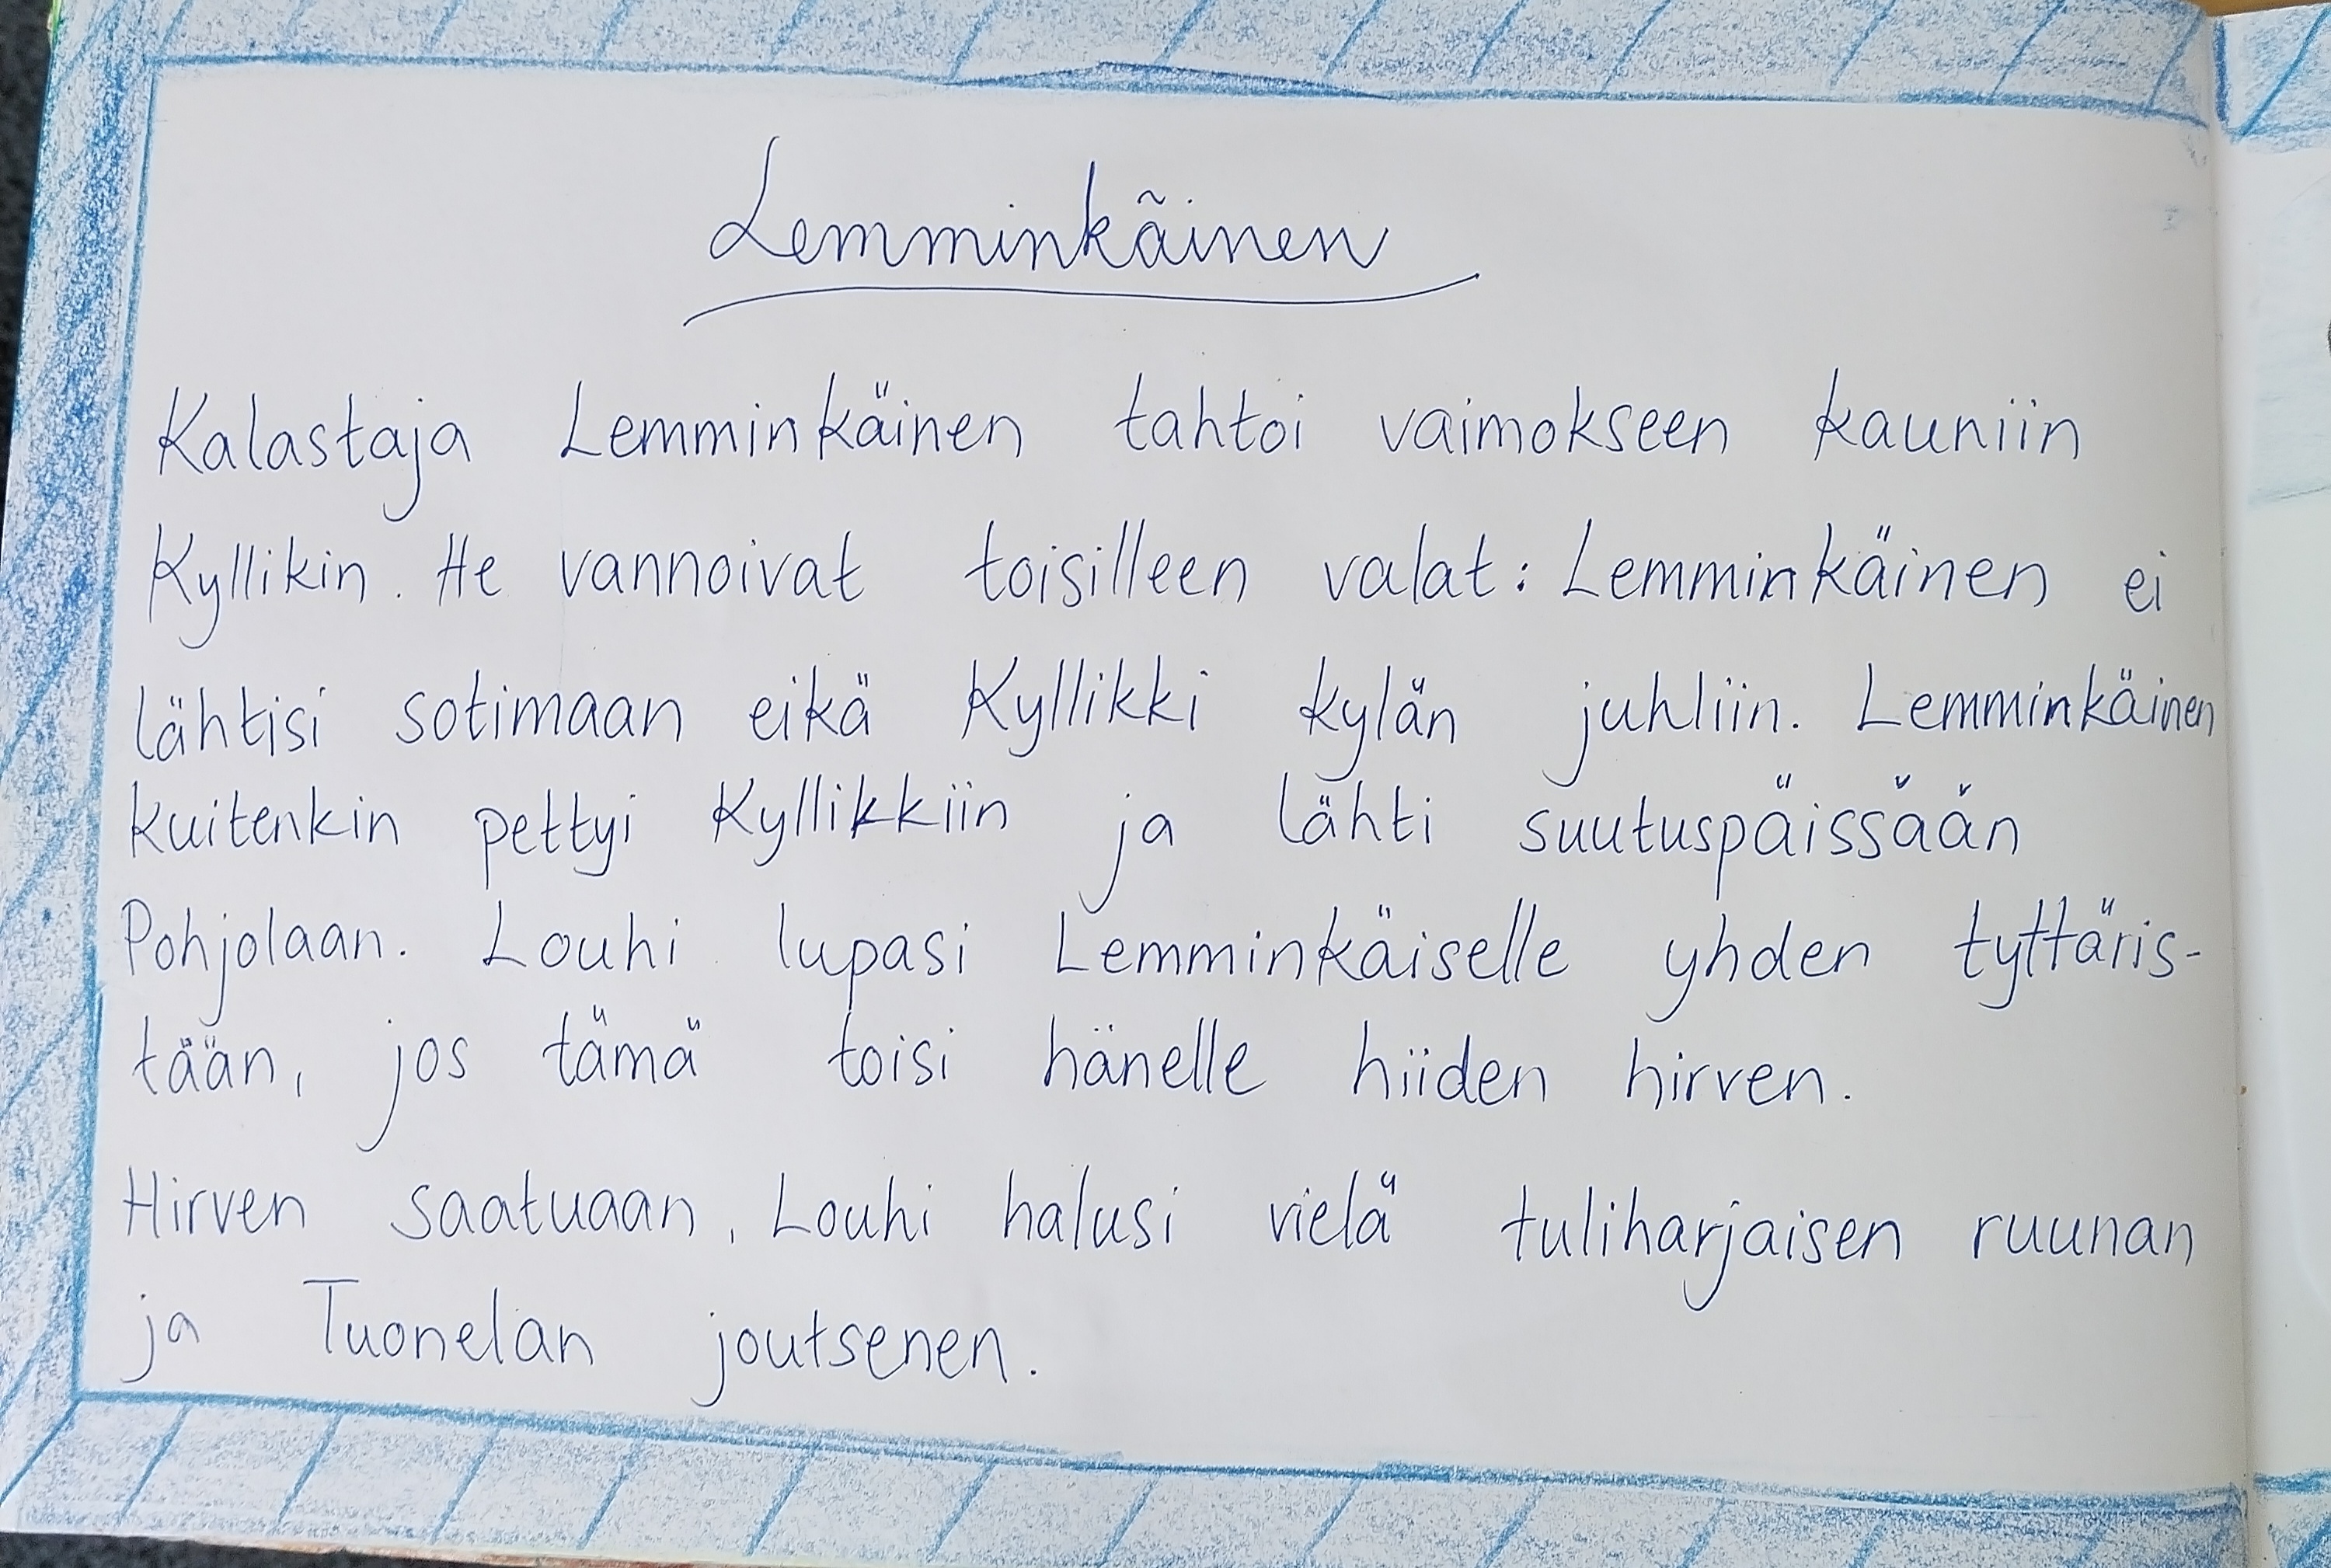 Lemminkäinen
Kalastaja Lemminkäinen tahtoi vaimokseen kauniin
Kyllikin. He vannoivat toisilleen valat: Lemminkäinen ei
lähtisi sotimaan eikä Kyllikki kylän juhliin. Lemminkäinen
kuitenkin pettyi Kyllikkiin ja lähti suutuspäissään
Pohjolaan. Louhi lupasi Lemminkäiselle yhden tyttäris-
tään, jos tämä toisi hänelle hiiden hirven.
Hirven saatuaan, Louhi halusi vielä tuliharjaisen ruunan
ja Tuonelan joutsenen.